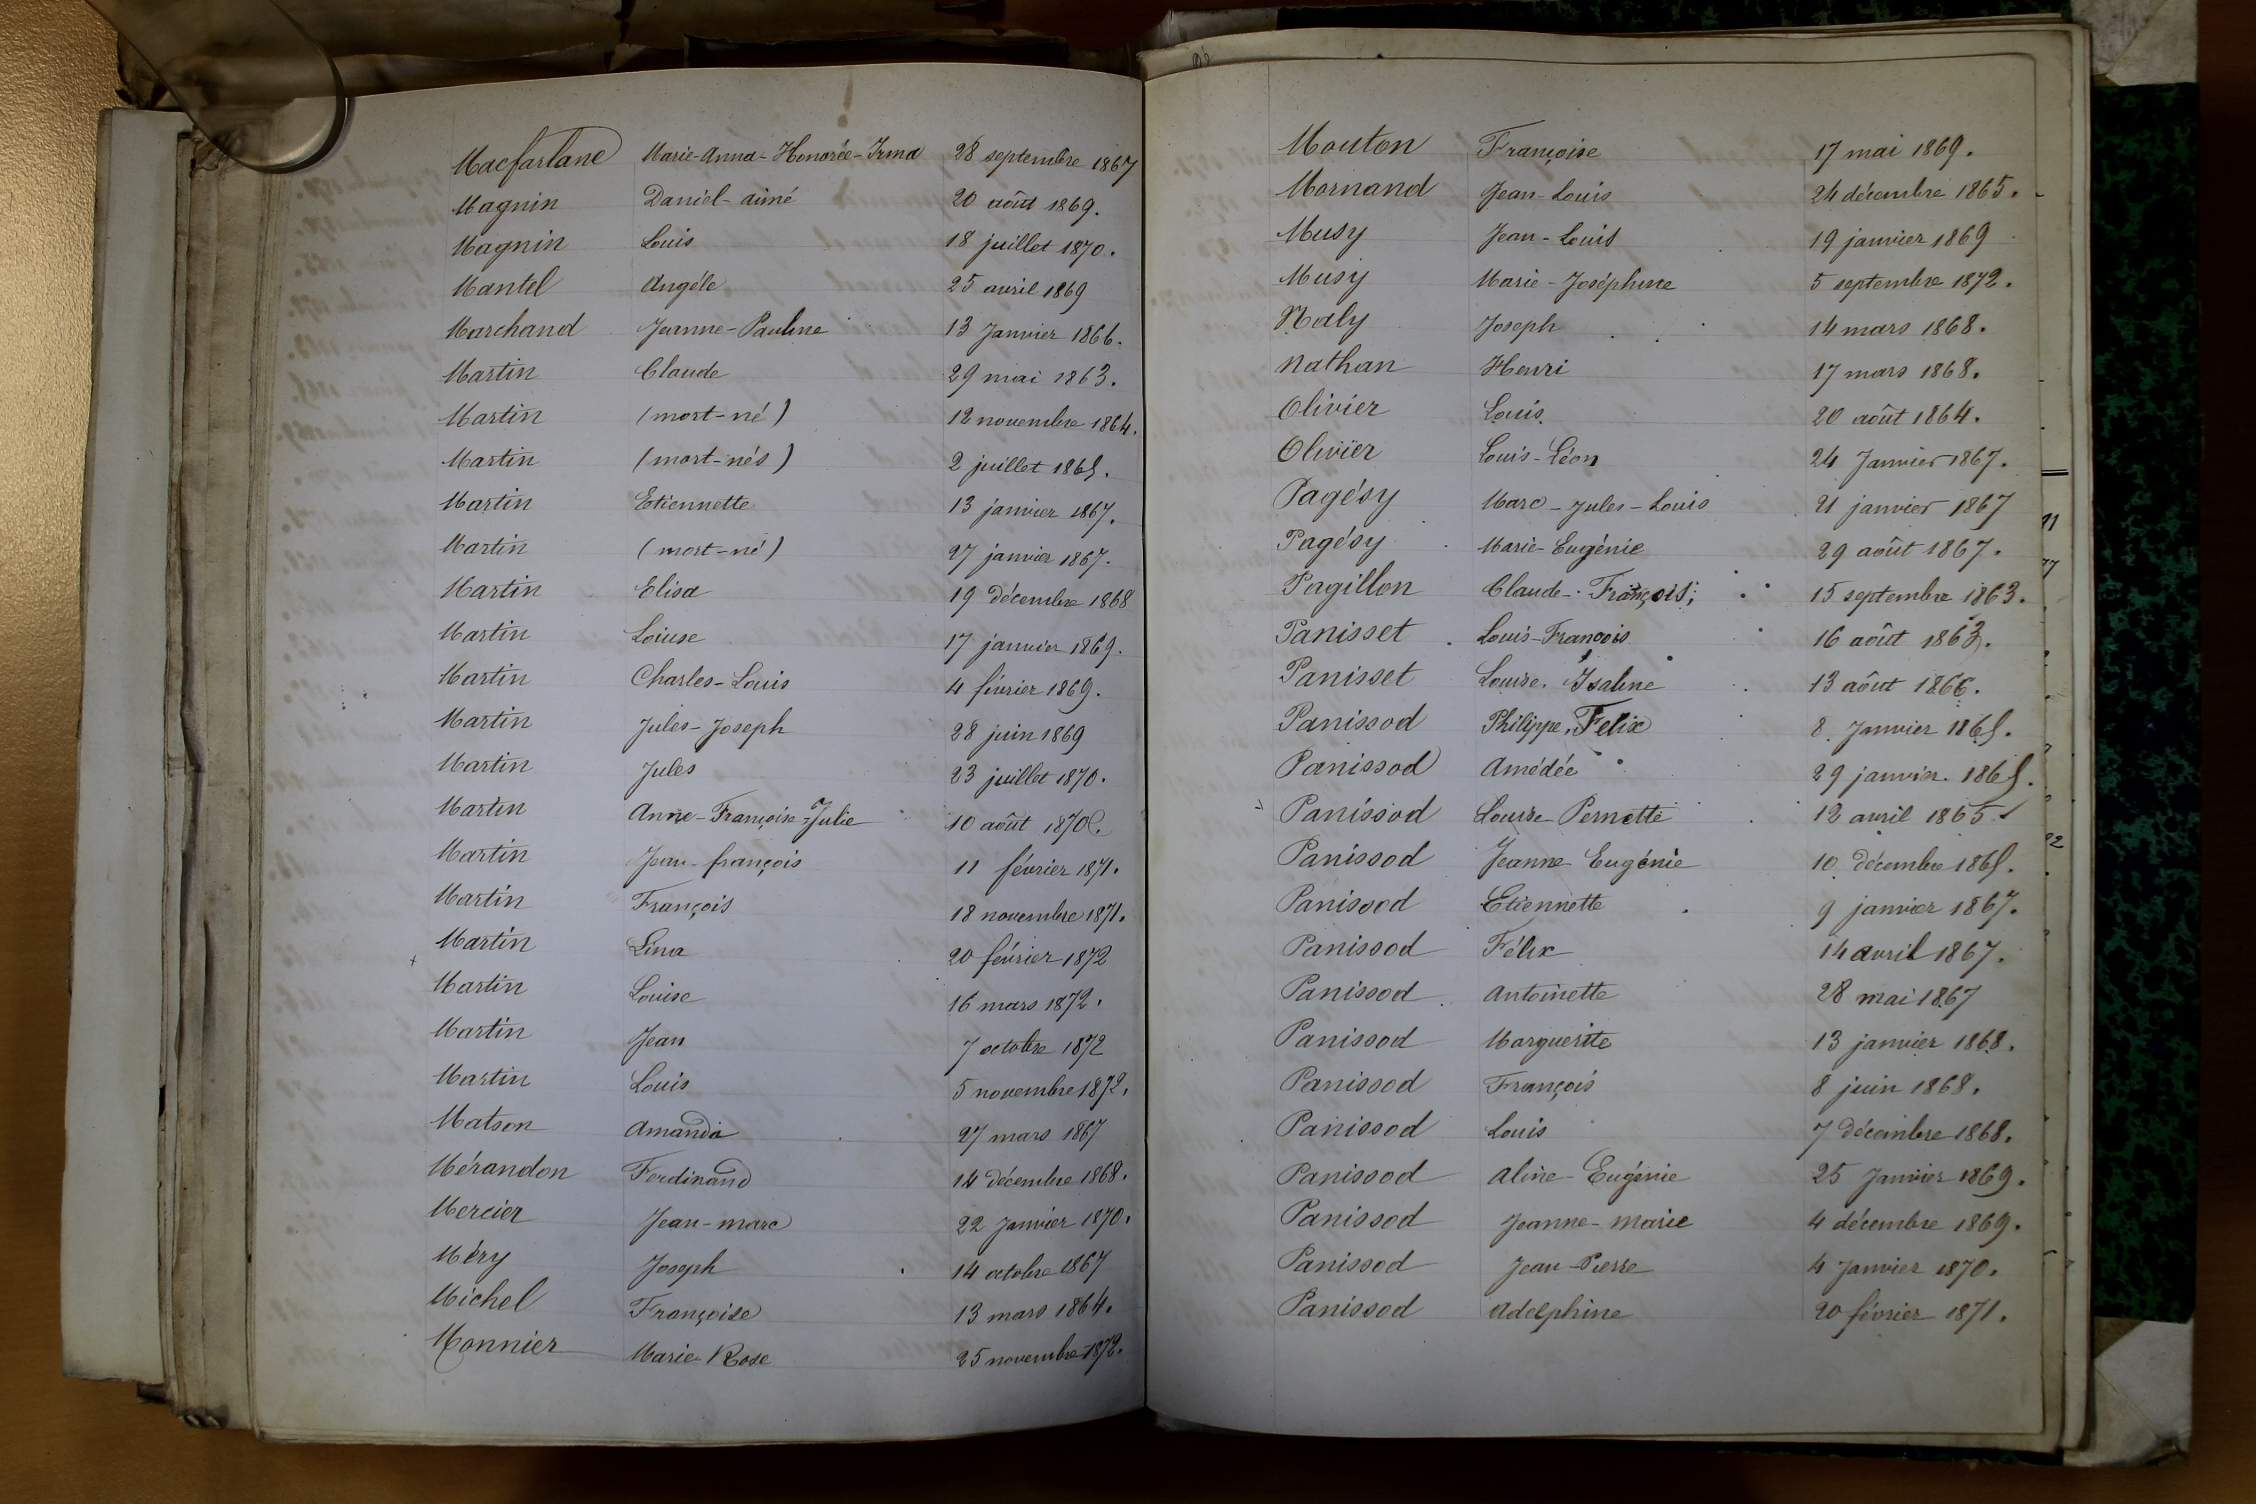 Macfarlane Marie-Anna-Honorée-Irma 28 septembre 1867
Magnin Daniel-aimé 20 août 1869.
Magnin Louis 18 juillet 1870.
Mantel Angéle 25 avril 1869
Marchand Jeanne-Pauline 13 Janvier 1866.
Martin Claude 29 mai 1863.
Martin (mort-né) 12 novembre 1864.
Martin (mort-nés) 2 juillet 1865.
Martin Etiennette 13 janvier 1867.
Martin (mort-né) 27 janvier 1867.
Martin Elisa 19 décembre 1868
Martin Loiuse 17 janvier 1869.
Martin Charles-Louis 4 février 1869.
Martin Jules-Joseph 28 juin 1869
Martin Jules 23 juillet 1870.
Martin Anne-Françoise-Julie 10 août 1870.
Martin Jean-françois 11 février 1871.
Martin François 18 novembre 1871.
Martin Lina 20 février 1872
Martin Louise 16 mars 1872.
Martin Jean 7 octobre 1872
Martin Louis 5 novembre 1872.
Matson Amanda 27 mars 1867
Mérandon Ferdinand 14 décembre 1868.
Mercier Jean-marc 22 Janvier 1870.
Méry Joseph 14 octobre 1867
Michel Françoise 13 mars 1864.
Monnier Marie-Rose 25 novembre 1872.
Mouton Françoise 17 mai 1869.
Mornand Jean-Louis 24 décembre 1865.
Musy Jean-Louis 19 janvier 1869
Musy Marie-Joséphine 5 septembre 1872.
Naly Joseph 14 mars 1868.
Nathan Henri 17 mars 1868.
Olivier Louis 20 août 1864.
Olivier Louis-Léon 24 Janvier 1867.
Pagésy Marc-Jules-Louis 21 janvier 1867
Pagésy Marie-Eugénie 29 août 1867.
Pagillon Claude-François; 15 septembre 1863.
Panisset Louis-François 16 août 1863.
Panisset Louise. Isaline 13 août 1866.
Panissod Philippe, Felix 8. Janvier 1865.
Panissod Amédée 29 janvier 1865.
Panissod Louise-Pernette 12 avril 1865
Panissod Jeanne Eugénie 10 décembre 1865.
Panissod Etiennette 9 janvier 1867.
Panissod Félix 14 avril 1867.
Panissod Antoinette 28 mai 1867
Panissod Marguerite 13 janvier 1868.
Panissod François 8 juin 1868.
Panissod Louis 7 décembre 1868.
Panissod Aline-Eugénie 25 Janvier 1869.
Panissod Jeanne-marie 4 décembre 1869.
Panissod Jean-Pierre 4 Janvier 1870.
Panissod Adelphine 20 février 1871.